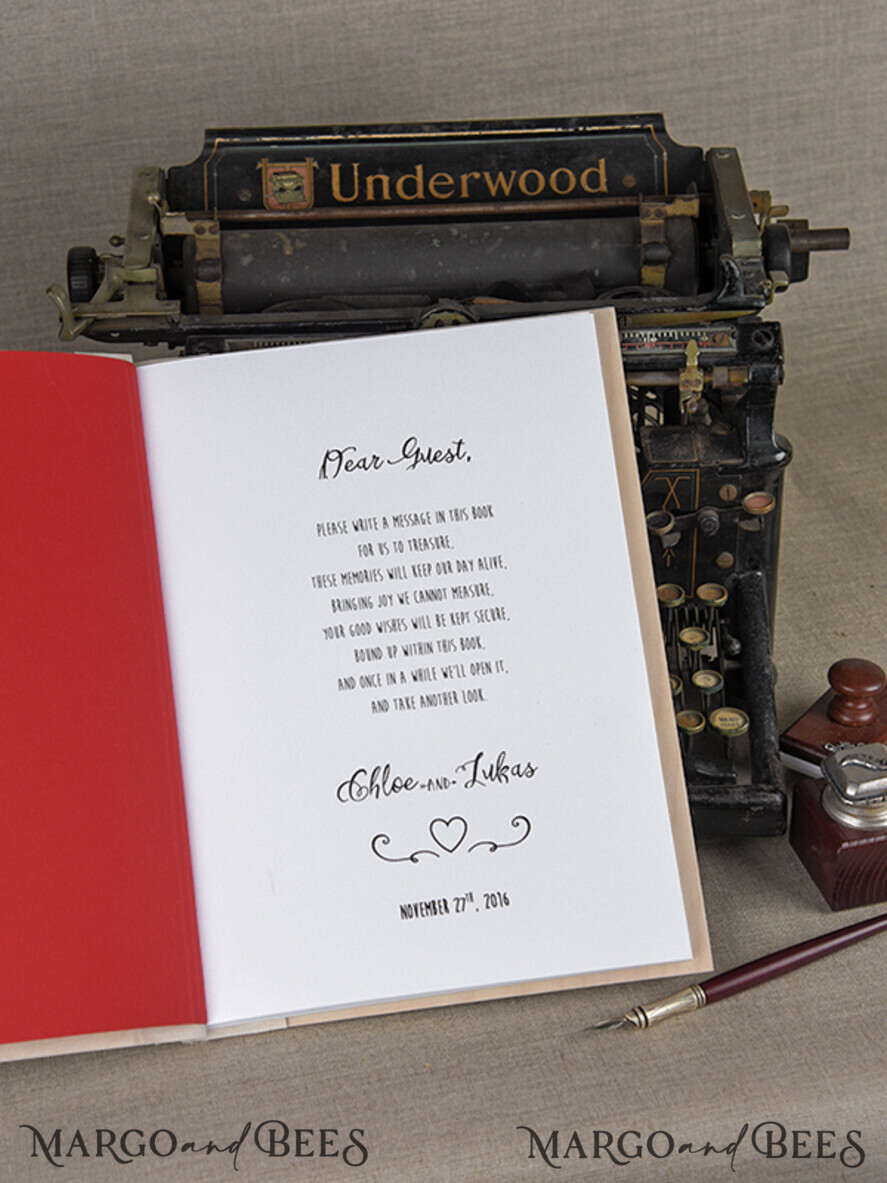 Underwood
Dear Guest,
PLEASE WRITE A MESSAGE IN THIS BOOK
FOR US TO TREASURE,
THESE MEMORIES WILL KEEP OUR DAY ALIVE,
BRINGING JOY WE CANNOT MEASURE,
YOUR GOOD WISHES WILL BE KEPT SECURE,
BOUND UP WITHIN THIS BOOK,
AND ONCE IN A WHILE WE'LL OPEN IT,
AND TAKE ANOTHER LOOK.
Chloe -AND- Lukas
NOVEMBER 27TH, 2016
MARGO and BEES MARGO and BEES